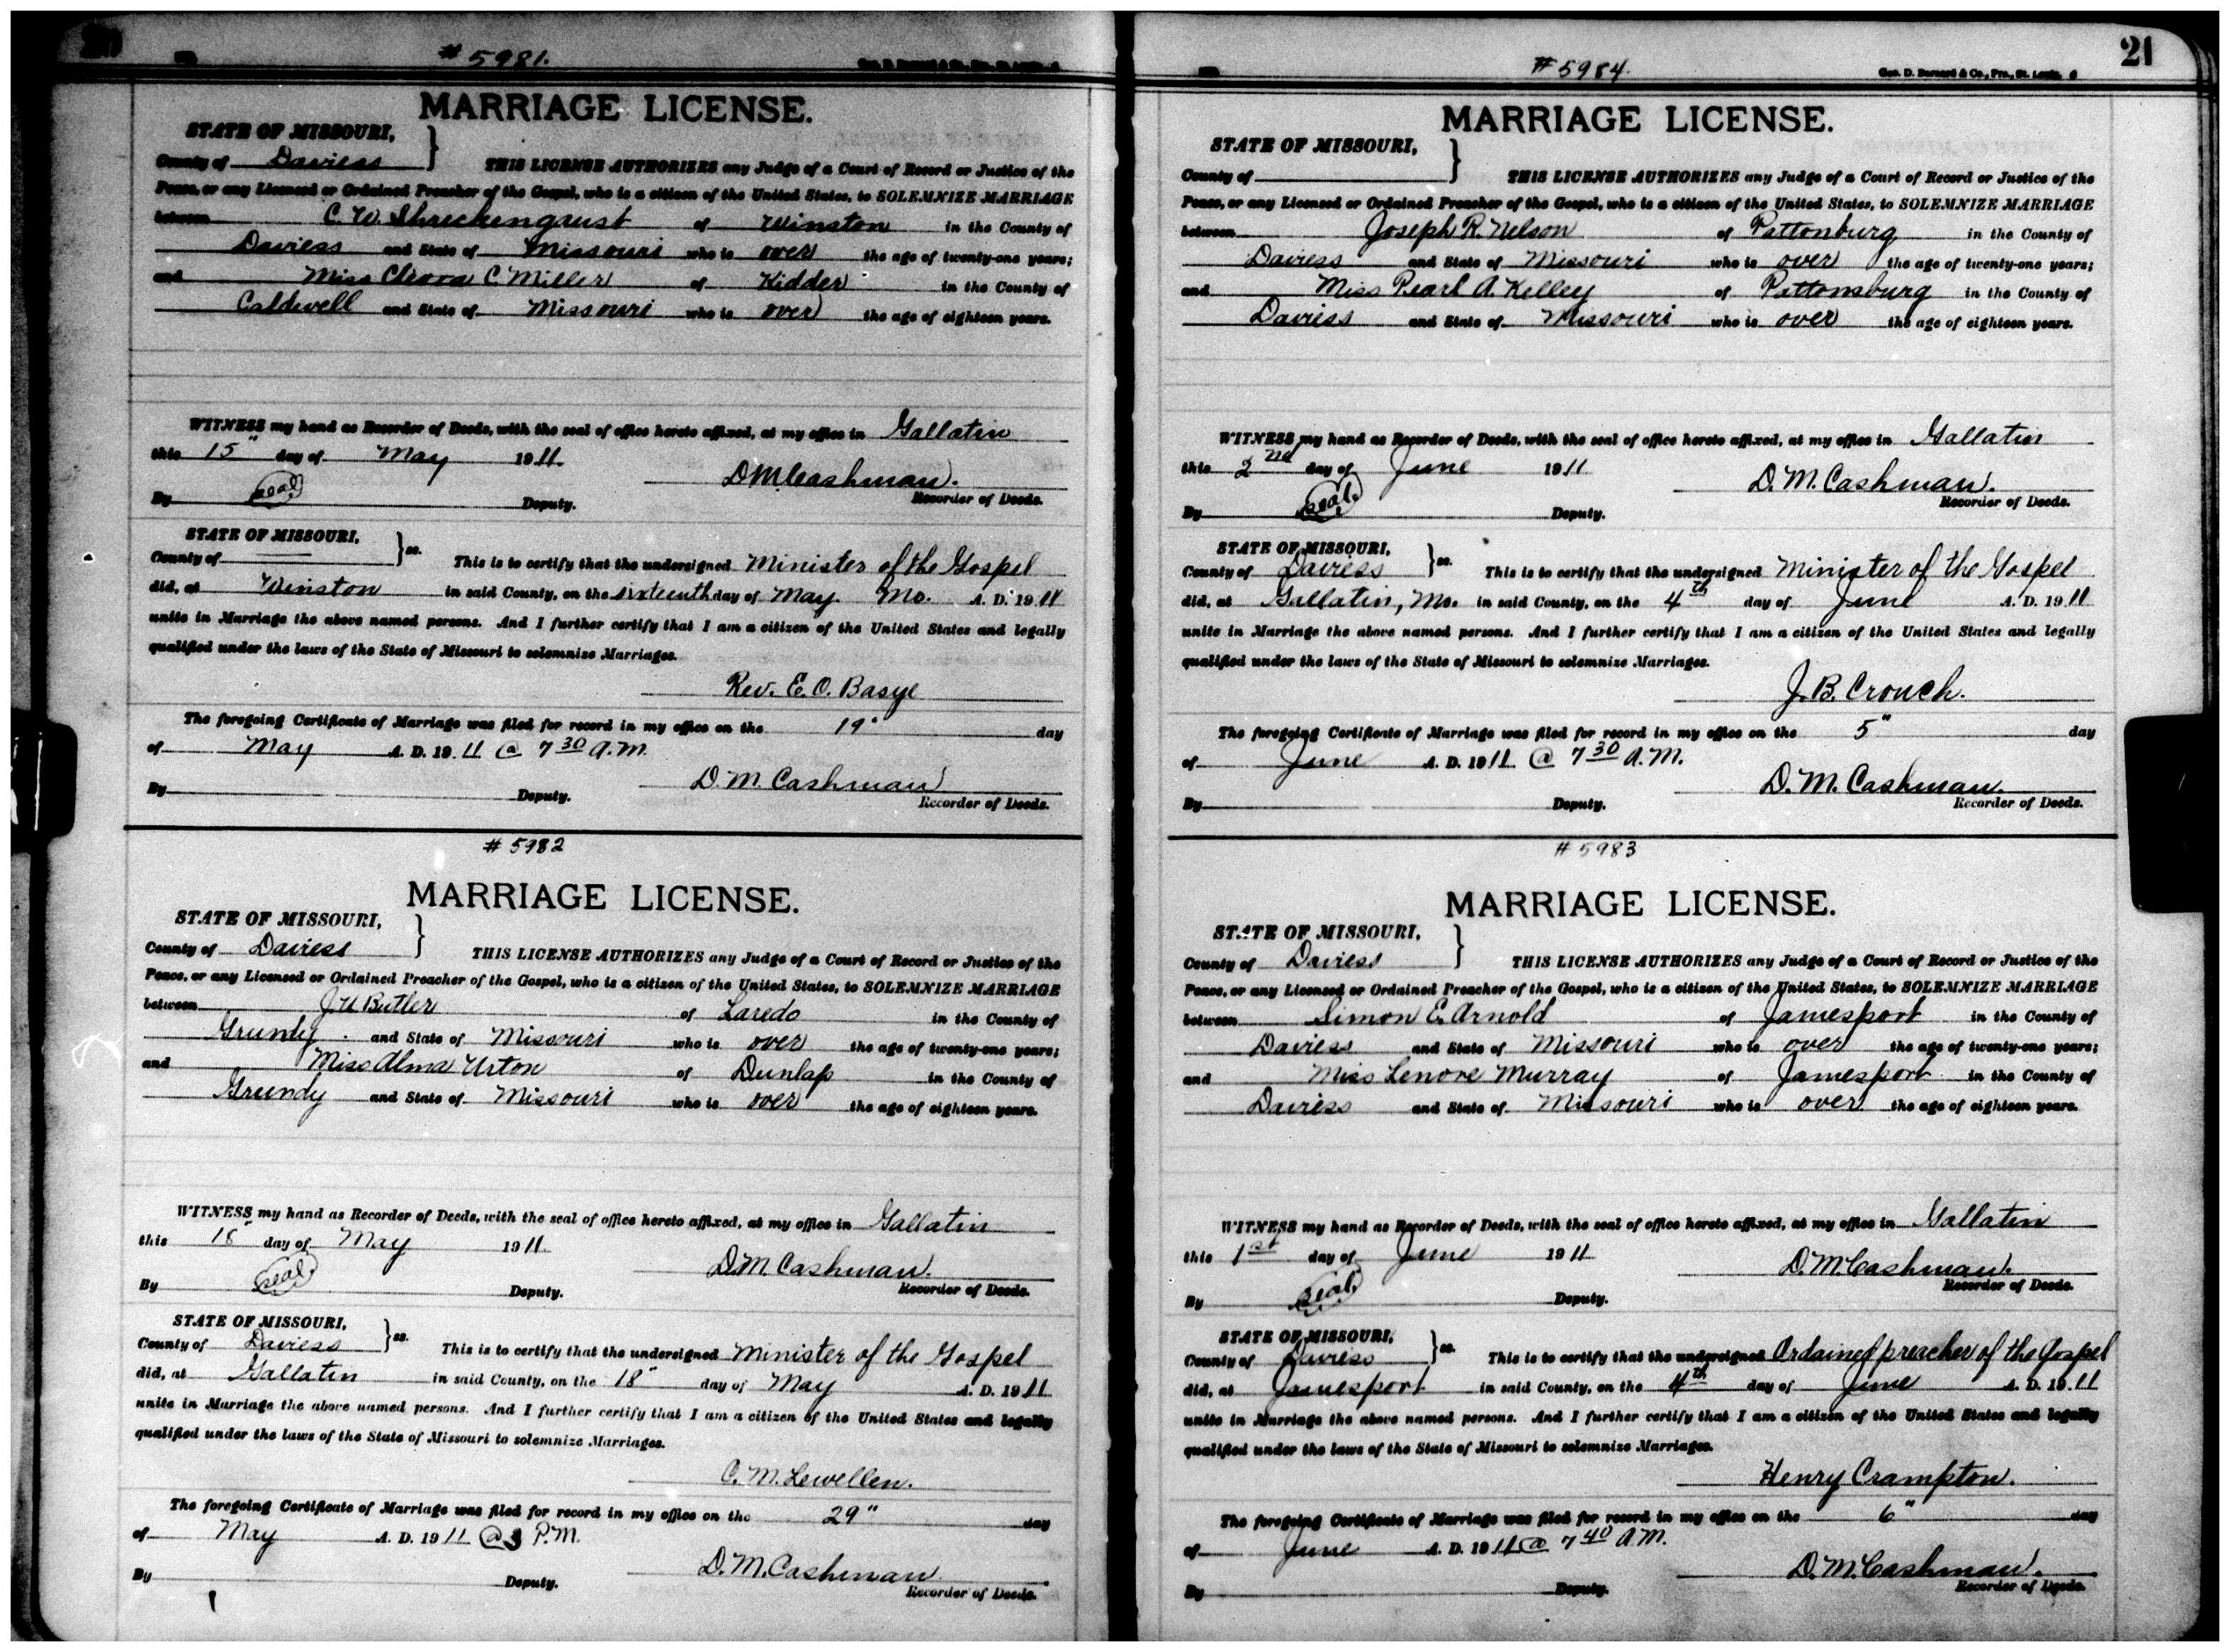 # 5981.
MARRIAGE LICENSE.
STATE OF MISSOURI,
County of Daviess } THIS LICENSE AUTHORIZES any Judge of a Court of Record or Justice of the
Peace, or any Licensed or Ordained Preacher of the Gospel, who is a citizen of the United States, to SOLEMNIZE MARRIAGE
between C. W. Shreckengaust of Winston in the County of
Daviess and State of Missouri who is over the age of twenty-one years;
and Miss C. Miller of Kidder in the County of
Caldwell and State of Missouri who is over the age of eighteen years.
WITNESS my hand as Recorder of Deeds, with the seal of office hereto affixed, at my office in Gallatin
this 15" day of May 1911.
D M Cashman.
By (seal) Deputy. Recorder of Deeds.
STATE OF MISSOURI,
County of } ss. This is to certify that the undersigned Minister of the Gospel
did, at Winston in said County, on the sixteenth day of May Mo. A. D. 1911
unite in Marriage the above named persons. And I further certify that I am a citizen of the United States and legally
qualified under the laws of the State of Missouri to solemnize Marriages.
Rev. E. O. Basye
The foregoing Certificate of Marriage was filed for record in my office on the 19" day
of May A. D. 19 11 @ 7 30 A.M.
D. M. Cashman
By Deputy. Recorder of Deeds.
# 5982
MARRIAGE LICENSE.
STATE OF MISSOURI,
County of Daviess } THIS LICENSE AUTHORIZES any Judge of a Court of Record or Justice of the
Peace, or any Licensed or Ordained Preacher of the Gospel, who is a citizen of the United States, to SOLEMNIZE MARRIAGE
between J. U Butler of Laredo in the County of
Grundy and State of Missouri who is over the age of twenty-one years;
and Miss Alma Urton of Dunlap in the County of
Grundy and State of Missouri who is over the age of eighteen years.
WITNESS my hand as Recorder of Deeds, with the seal of office hereto affixed, at my office in Gallatin
this 18" day of May 1911.
D. M. Cashman.
By (seal) Deputy. Recorder of Deeds.
STATE OF MISSOURI,
County of Daviess } ss. This is to certify that the undersigned Minister of the Gospel
did, at Gallatin in said County, on the 18" day of May A. D. 1911
unite in Marriage the above named persons. And I further certify that I am a citizen of the United States and legally
qualified under the laws of the State of Missouri to solemnize Marriages.
C. M. Lewellen.
The foregoing Certificate of Marriage was filed for record in my office on the 29" day
of May A. D. 19 11 @ 3 P.M.
D. M. Cashman
By Deputy. Recorder of Deeds.
21
# 5984. Geo. D. Barnard & Co., Pro., St. Louis. 6
MARRIAGE LICENSE.
STATE OF MISSOURI,
County of } THIS LICENSE AUTHORIZES any Judge of a Court of Record or Justice of the
Peace, or any Licensed or Ordained Preacher of the Gospel, who is a citizen of the United States, to SOLEMNIZE MARRIAGE
between Joseph R. Nelson of Pattonburg in the County of
Daviess and State of Missouri who is over the age of twenty-one years;
and Miss Pearl A. Kelley of Pattonsburg in the County of
Daviess and State of Missouri who is over the age of eighteen years.
WITNESS my hand as Recorder of Deeds, with the seal of office hereto affixed, at my office in Gallatin
this 2nd day of June 1911
D. M. Cashman.
By (seal) Deputy. Recorder of Deeds.
STATE OF MISSOURI,
County of Daviess } ss. This is to certify that the undersigned Minister of the Gospel
did, at Gallatin, Mo. in said County, on the 4th day of June A. D. 1911
unite in Marriage the above named persons. And I further certify that I am a citizen of the United States and legally
qualified under the laws of the State of Missouri to solemnize Marriages.
J. B. Crouch.
The foregoing Certificate of Marriage was filed for record in my office on the 5" day
of June A. D. 1911. @ 7 30 A.M.
D. M. Cashman.
By Deputy. Recorder of Deeds.
# 5983
MARRIAGE LICENSE.
STATE OF MISSOURI,
County of Daviess } THIS LICENSE AUTHORIZES any Judge of a Court of Record or Justice of the
Peace, or any Licensed or Ordained Preacher of the Gospel, who is a citizen of the United States, to SOLEMNIZE MARRIAGE
between Simon E. Arnold of Jamesport in the County of
Daviess and State of Missouri who is over the age of twenty-one years;
and Miss Lenore Murray of Jamesport in the County of
Daviess and State of Missouri who is over the age of eighteen years.
WITNESS my hand as Recorder of Deeds, with the seal of office hereto affixed, at my office in Gallatin
this 1st day of June 1911
D. M. Cashman.
By (seal) Deputy. Recorder of Deeds.
STATE OF MISSOURI,
County of Daviess } ss. This is to certify that the undersigned Ordained preacher of the Gospel
did, at Jamesport in said County, on the 4th day of June A. D. 1911
unite in Marriage the above named persons. And I further certify that I am a citizen of the United States and legally
qualified under the laws of the State of Missouri to solemnize Marriages.
Henry Crampton.
The foregoing Certificate of Marriage was filed for record in my office on the 6" day
of June A. D. 1911 @ 7 40 A.M.
D. M. Cashman.
By Deputy. Recorder of Deeds.